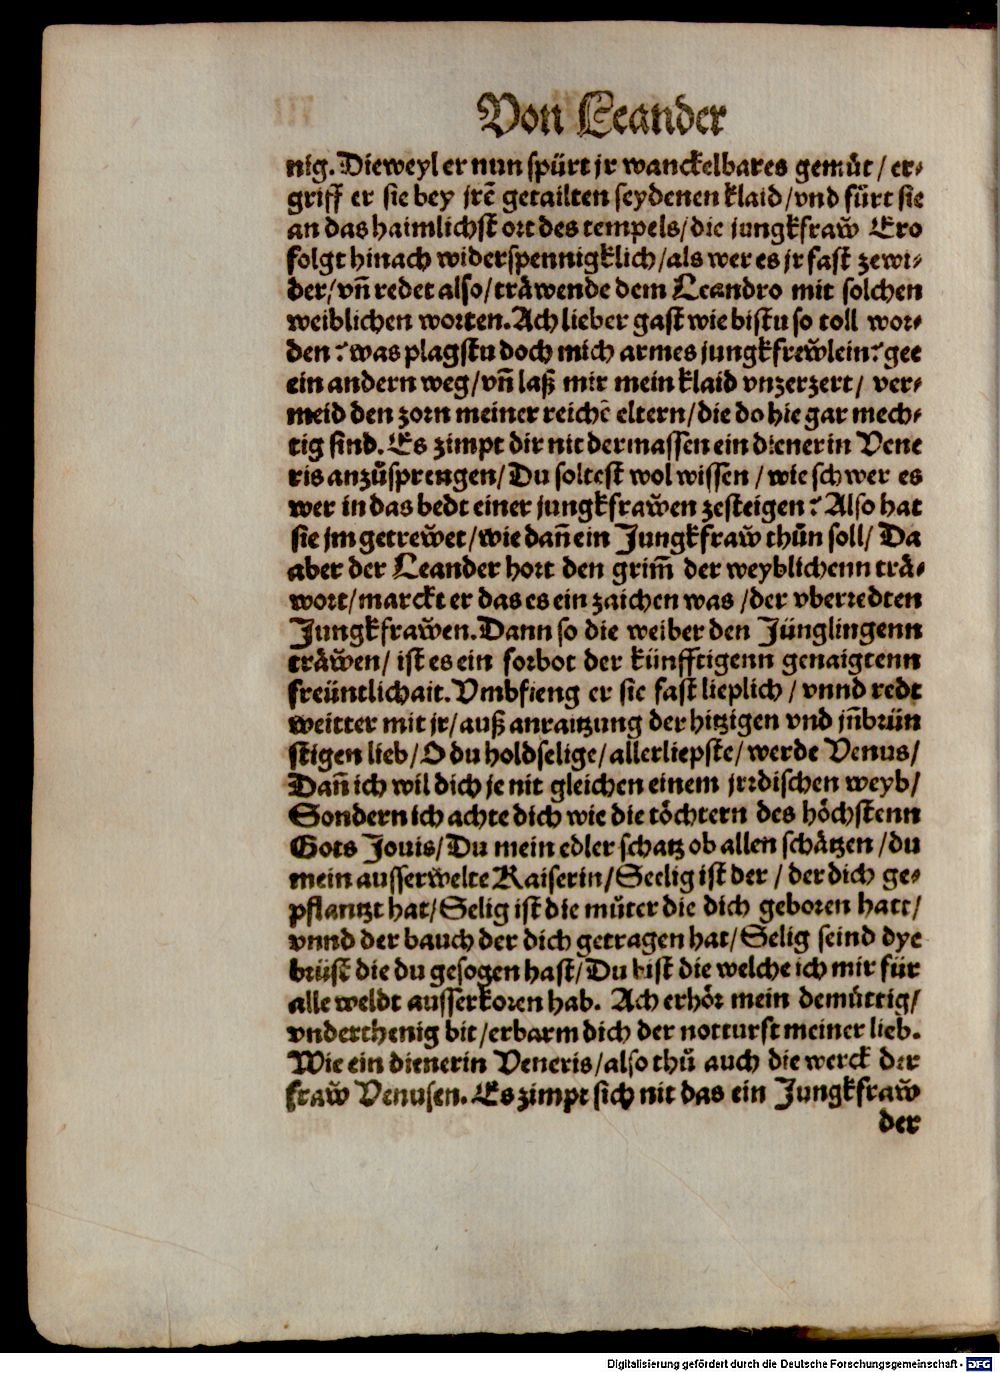 Von Leander
nig. Dieweyl er nun spürt jr wanckelbares gemůt / er⸗
griff er sie bey jrẽ getailten seydenen klaid / vnd fürt sie
an das haimlichst ort des tempels / die jungkfraw̆ Ero
folgt hinach widerspennigklich / als wer es jr fast zewi⸗
der / vñ redet also / träwende dem Leandro mit solchen
weiblichen worten. Ach lieber gast wie bistu so toll wor⸗
den? was plagstu doch mich armes jungkfrew̆lein? gee
ein andern weg / vñ laß mir mein klaid vnzerzert / ver⸗
meid den zorn meiner reichẽ eltern / die do hie gar mech⸗
tig sind. Es zimpt dir nit dermassen ein dienerin Vene
ris anzůsprengen / Du soltest wol wissen / wie schwer es
wer in das bedt einer jungkfraw̆en zesteigen? Also hat
sie jm getrew̆et / wie dañ ein Jungkfraw thůn soll / Da
aber der Leander hort den grim̃ der weyblichenn trä⸗
wort / marckt er das es ein zaichen was / der vberredten
Jungkfraw̆en. Dann so die weiber den Jünglingenn
träw̆en / ist es ein forbot der künfftigenn genaigtenn
freüntlichait. Vmbfieng er sie fast lieplich / vnnd redt
weitter mit jr / auß anraitzung der hitzigen vnd jñbrün
stigen lieb / O du holdselige / allerliepste / werde Venus /
Dañ ich wil dich je nit gleichen einem jrrdischen weyb /
Sondern ich achte dich wie die töchtern des höchstenn
Gots Jouis / Du mein edler schatz ob allen schätzen / du
mein ausserwelte Kaiserin / Seelig ist der / der dich ge⸗
pflantzt hat / Selig ist die můter die dich geboren hatt /
vnnd der bauch der dich getragen hat / Selig seind dye
brüst die du gesogen hast / Du bist die welche ich mir für
alle weldt ausserkoren hab. Ach erhör mein demüttig /
vnderthenig bit / erbarm dich der notturft meiner lieb.
Wie ein dienerin Veneris / also thů auch die werck der
fraw̆ Venusen. Es zimpt sich nit das ein Jungkfraw̆
der
Digitalisierung gefördert durch die Deutsche Forschungsgemeinschaft - DFG